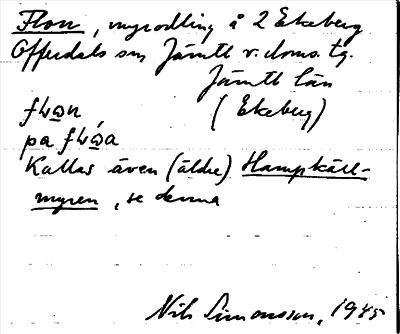 Flon, myrodling å 2 Ekeberg
Offerdals sn Jämtl v. doms. tg.
Jämtl län
flωn (Ekeberg)
pa flώa
Kallas även (äldre) Hampkäll-
myren, se denna
Nils Simonsson, 1945